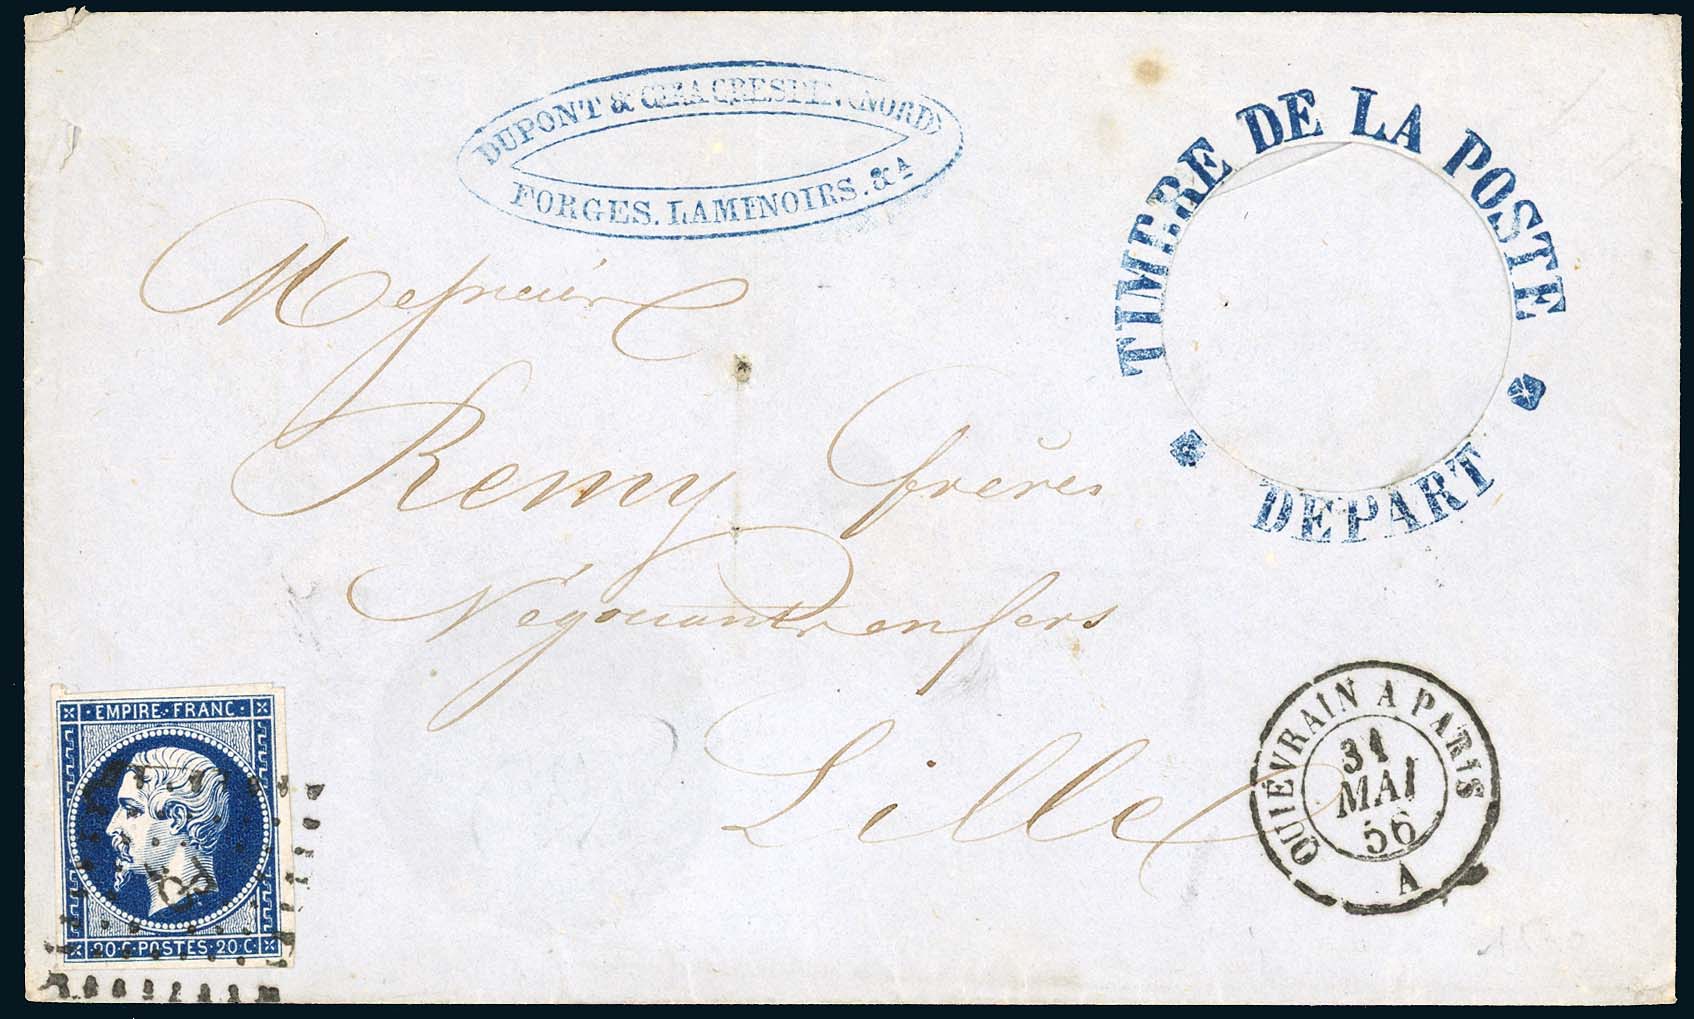 DUPONT & CIE A CRESPIN (NORD)
FORGES. LAMINOIRS. &A
TIMBRE DE LA POSTE
DEPART
Messieurs
Remy frères
Négociants en fers
Lille
EMPIRE · FRANC ·
20 · C · POSTES · 20 C ·
QUIÉVRAIN A PARIS
31
MAI
56
A